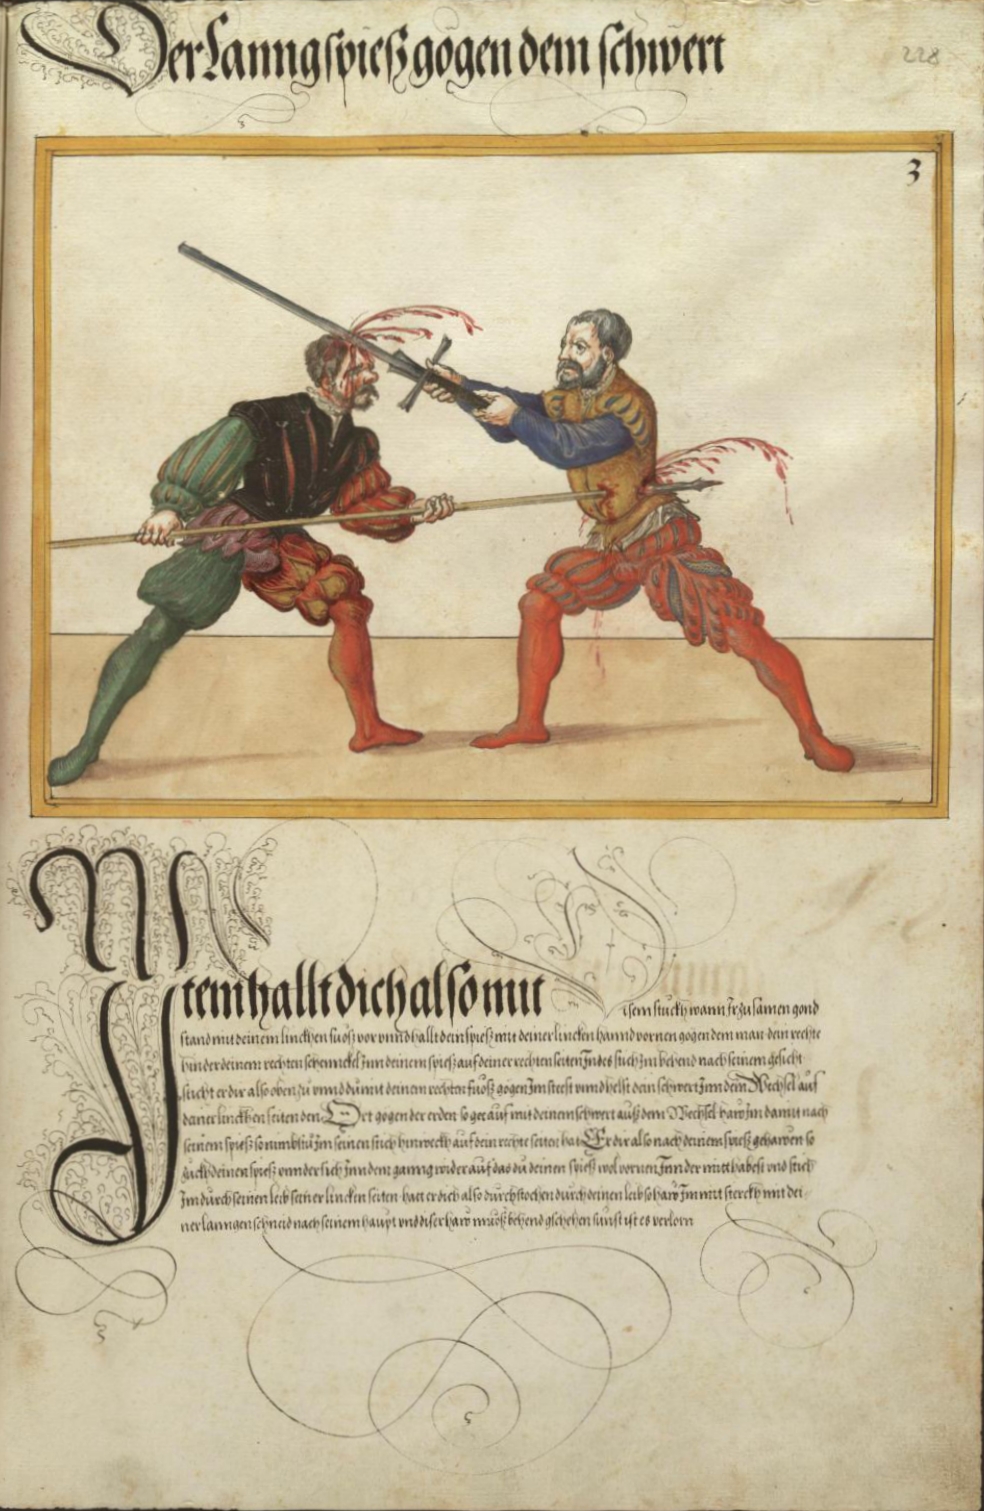 Der Lanngspiesz gögen dem schwert
228
3
Item hallt dich also mit
disem stuckh wann Ir zusamen gond
stand mit deinem linckhen fuosz vor vnnd hallt dein spiesz mit deiner lincken hannd vornen gögen dem man dein rechte
hinder deinem rechten schennckel Inn deinem spiesz auf deiner rechten seiten Indes stich Im behend nach seinem gesicht
sticht er dir also oben zu vnnd du mit deinem rechten fuosz gögen Im steest vnnd helst dein schwert Inn dem Wechsel auf
deiner linckhen seiten den Ort gögen der erden so gee auf mit deinem schwert ausz dem Wechsel haw Im damit nach
seinem spiesz so nimbstu Im seinen stich hinweckh auf dein rechte seiten hat Er dir also nach deinem spiesz gehawen so
zuckh deinen spiesz vnnder sich Inn dem ganng wider auf das du deinen spiesz wol vornen Inn der mitt habest vnd stich
Im durch seinen leib seiner lincken seiten hatt er dich also durchstochen durch deinen leib so haw Im mit sterckh mit dei
ner lanngen schneid nach seinem haupt vnd diser haw muosz behend gschehen sunst ist es verlorn